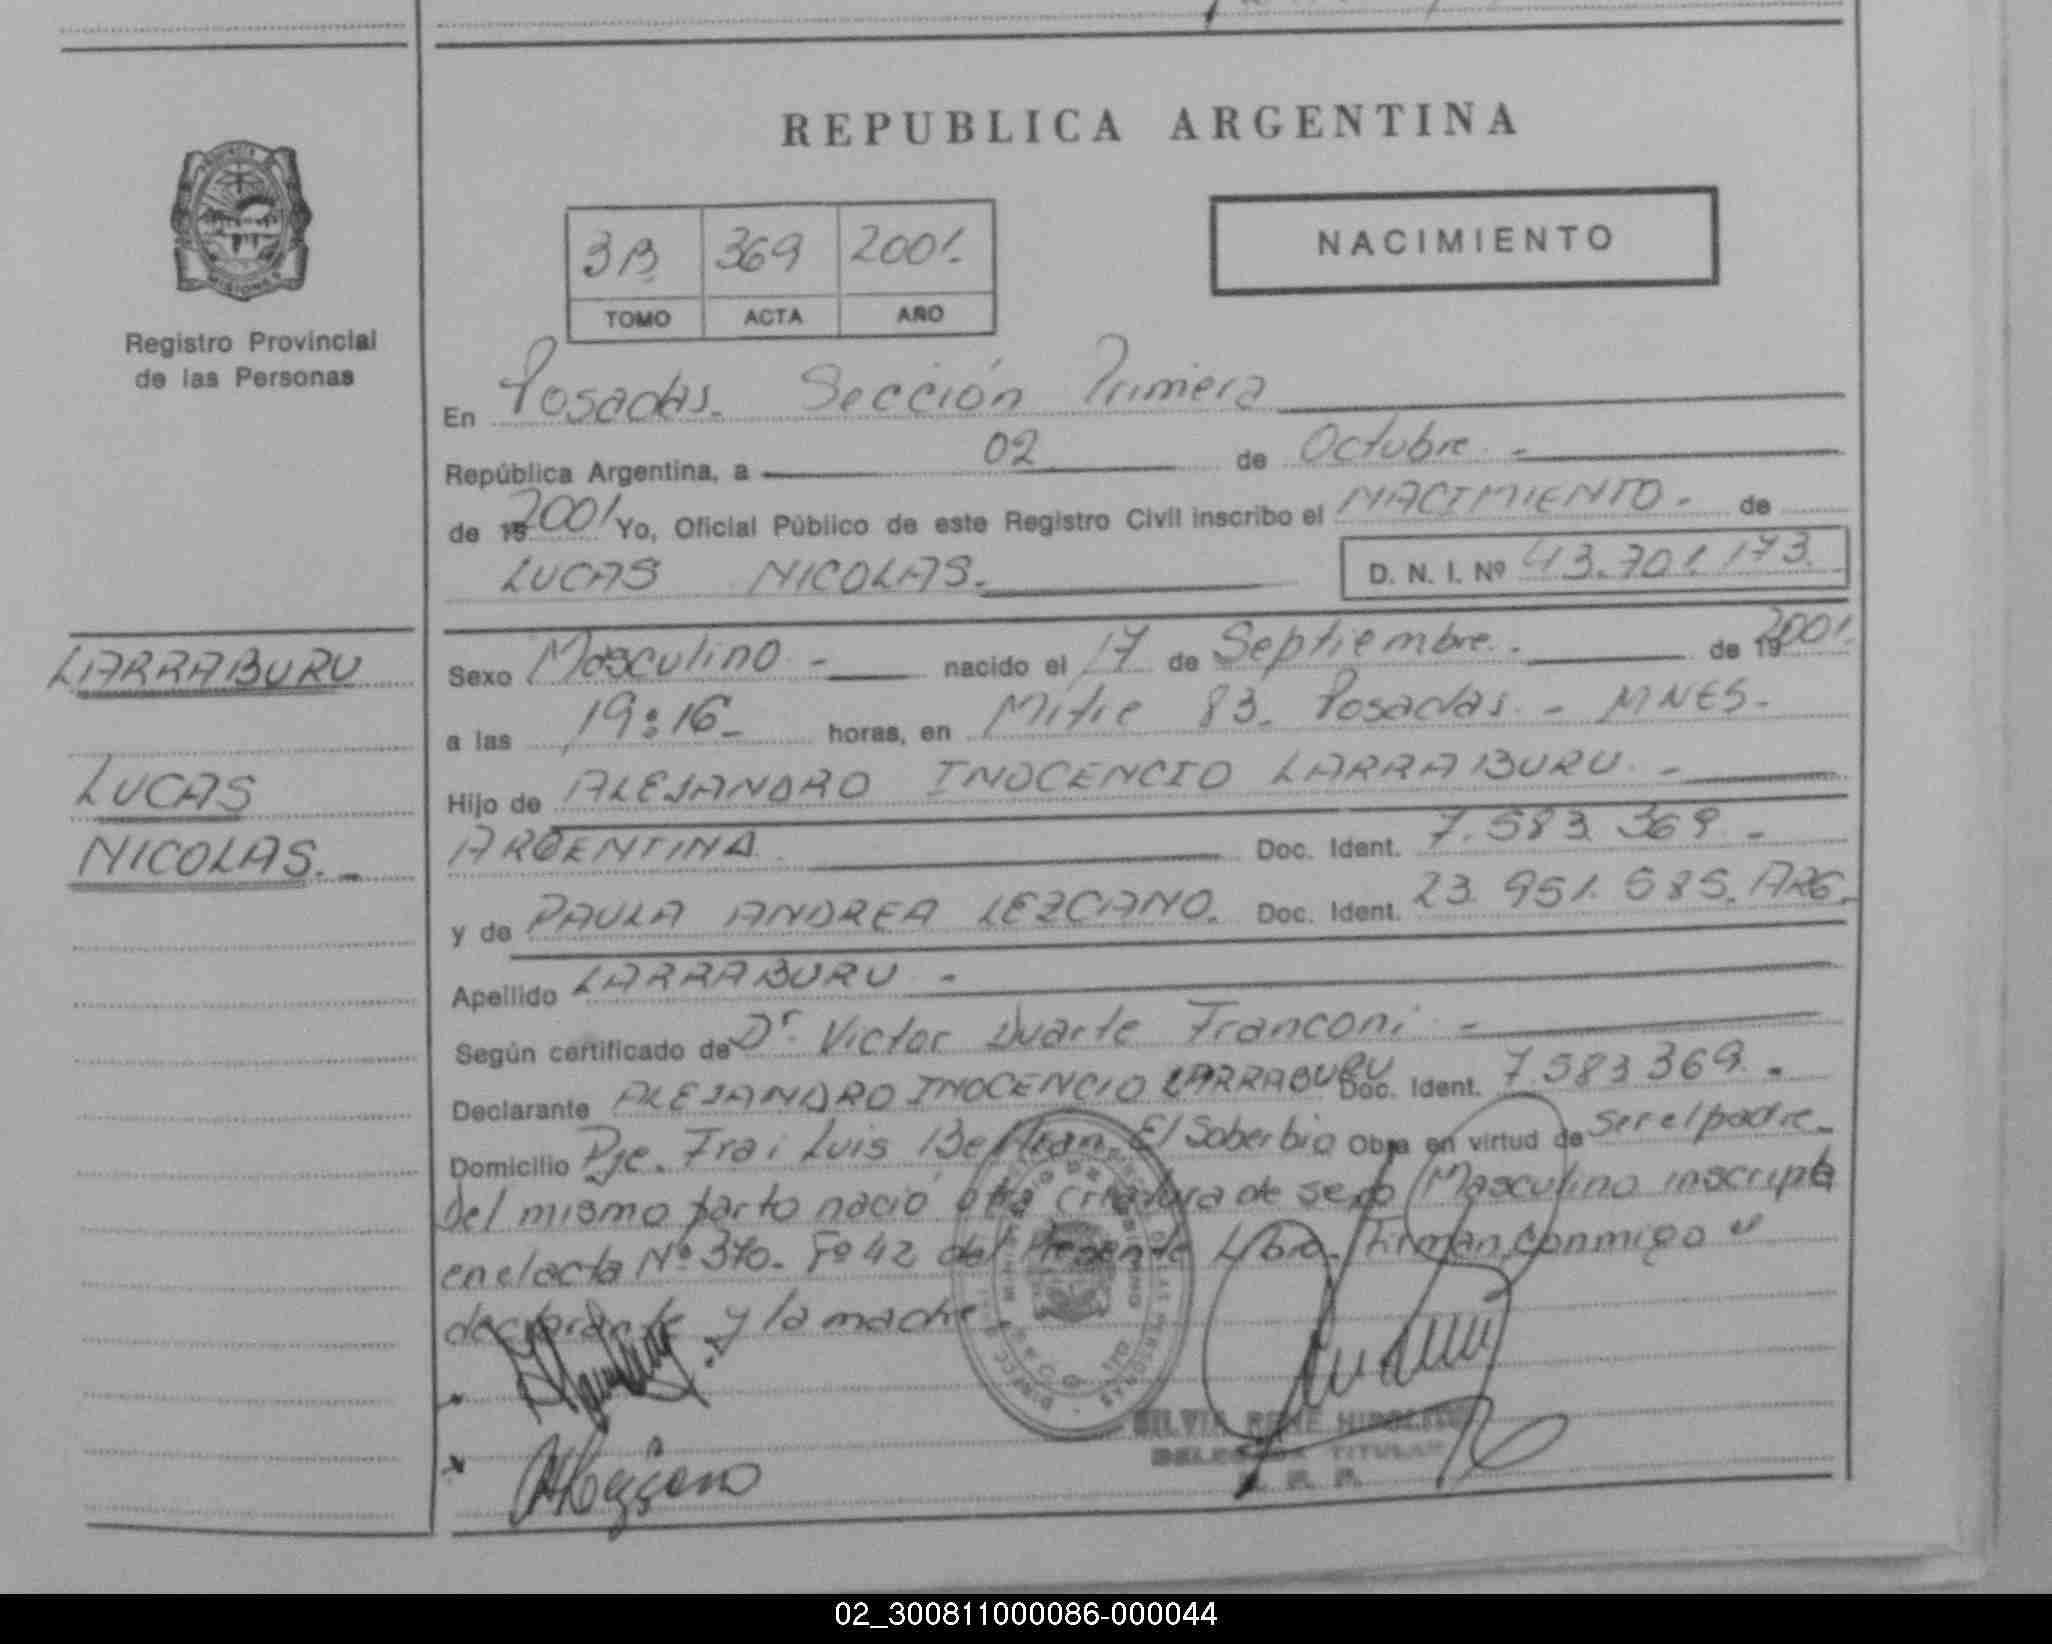 REPUBLICA ARGENTINA
NACIMIENTO
3B 369 2001.
TOMO ACTA AÑO
Registro Provincial
de las Personas
En Posadas. Sección Primera
República Argentina, a 02 de Octubre. -
de 19 2001 Yo, Oficial Público de este Registro Civil inscribo el NACIMIENTO. de
LUCAS NICOLAS. D. N. I. Nº 43.701.173.
LARRABURU
LUCAS
NICOLAS. -
Sexo Masculino - nacido el 17 de Septiembre. de 19 2001.
a las 19:16- horas, en Mitre 83. Posadas. - MNES.
Hijo de ALEJANDRO INOCENCIO LARRABURU. -
ARGENTINA. Doc. Ident. 7.583.369. -
y de PAULA ANDREA LEZCANO. Doc. Ident. 23.951.585. ARG.
Apellido LARRABURU -
Según certificado de Dr. Victor Duarte Franconi -
Declarante ALEJANDRO INOCENCIO LARRABURU Doc. Ident. 7.583369. -
Domicilio Pje. Frai Luis Beltran. El Soberbio Obra en virtud de ser el padre.
Del mismo parto nació otra criatura de sexo Masculino inscripta
en el acta Nº 370. Fº 42 del Presente Libro. Firman conmigo el
declarante y la madre.
SILVIA RENE HIPOLITO
DELEGADA TITULAR
R. P. P.
02_300811000086-000044